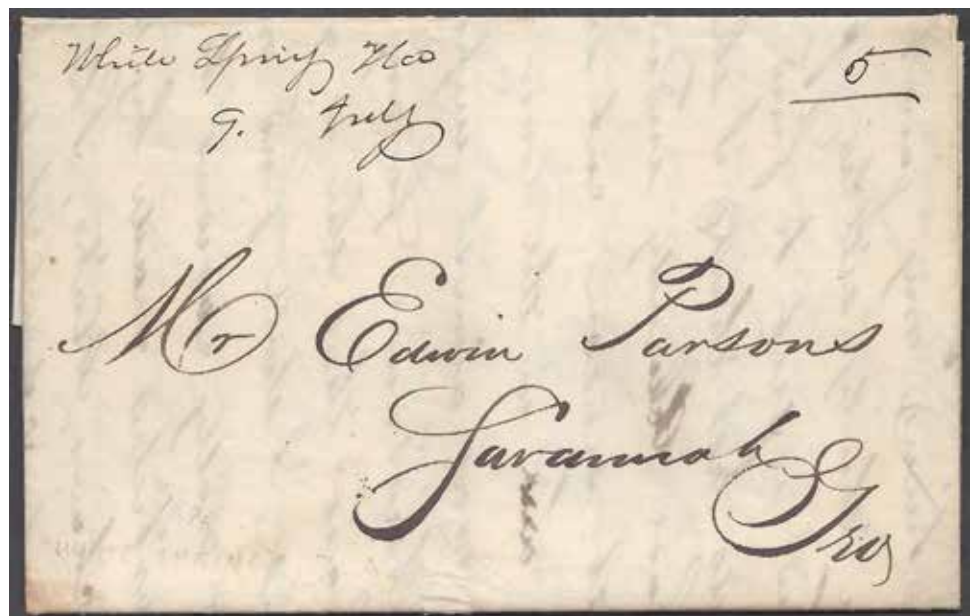 White Spring Flo
5
9. July
Mr Edwin Parsons
Savannah
Geo